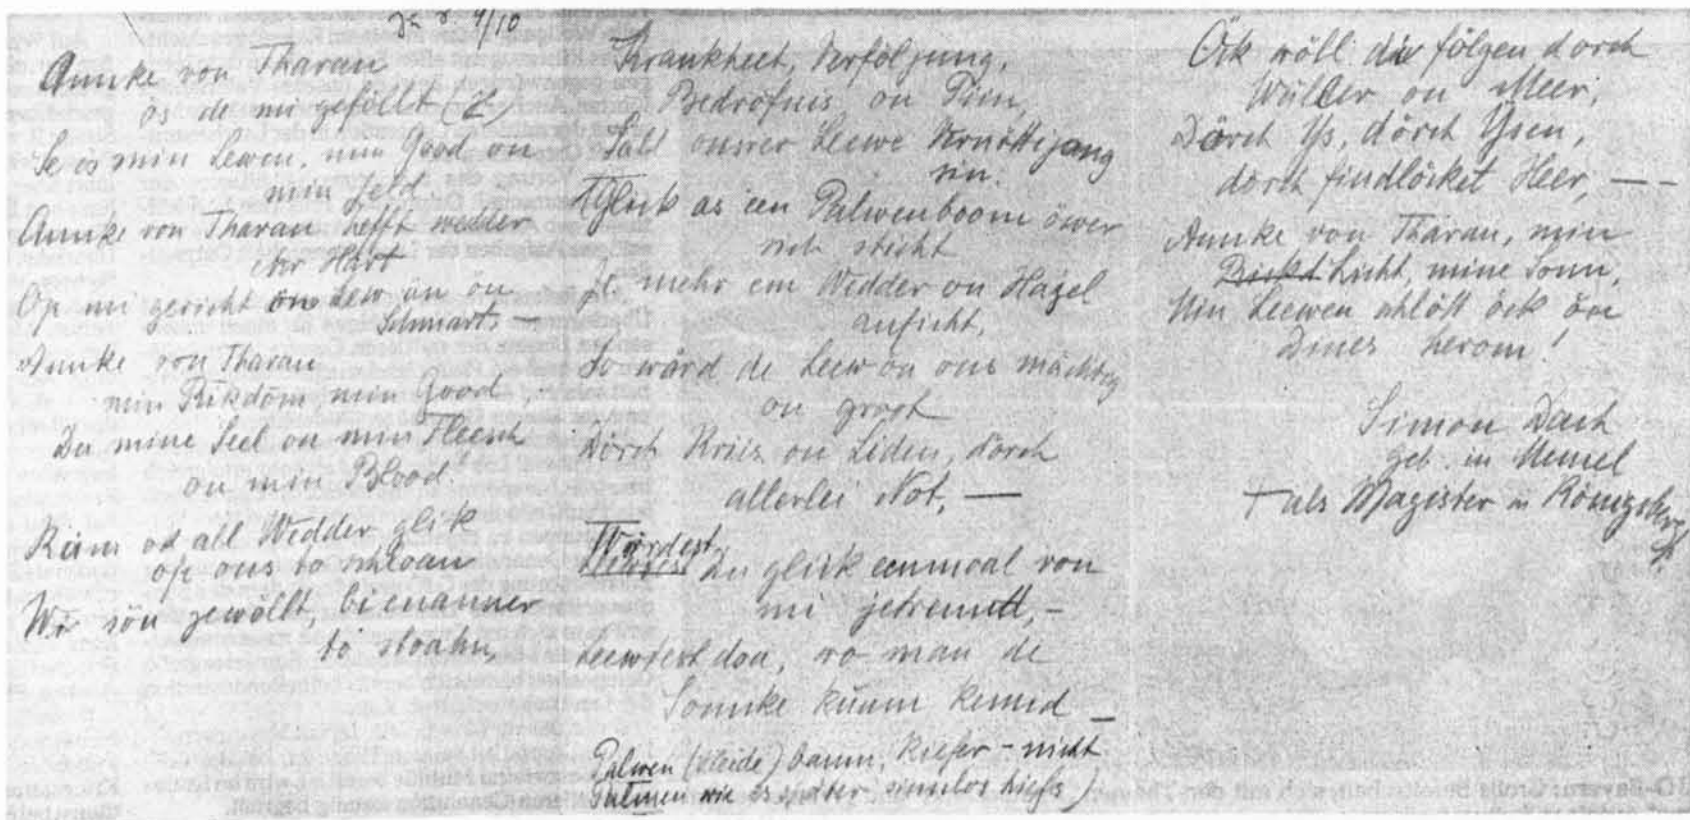 4/10
Annke von Tharau
ös de mi geföllt (2)
Se ös min Lewen, min Good on
min Jeld
Annke von Tharau hefft wedder
ehr Hart
Op mi gericht ön Lew on ön
Schmart –
Annke von Tharau
min Rikdom, min Good,
Du mine Seel on min Fleesch
on min Blood.
Keim ok all Wedder glik
op ons to schloan
Wi sön gewöllt, bienanner
to stoahn,
Krankheet, Verfölgung,
Bedröfnis on Pien,
Sall onsrer Leewe Vernöttigung
sin.
Glik as een Palwenboom öwer
sich sticht
Je mehr em Wedder on Hagel
anficht,
So wärd de Leew on ons mächtig
on groot
Dörch Kriez on Liden, dörch
allerlei Not, —
Würdest
du glik eenmoal von
mi jetrennt, –
Leewtest doa, wo man de
Sonnke kuum kennd –
Palwen (Heide) baum, Kiefer – nicht
Palmen wie es später sinnlos hiess)
Öck wöll di fölgen dorch
Wüller on Meer,
Dörch Ys, dörch Ysen,
dörch findlöcket Heer, — —
Annke von Tharau, min
Licht, mine Sonn,
Min Leewen schlött öck ön
Dines herom!
Simon Dach
geb. in Memel
† als Magister in Königsberg